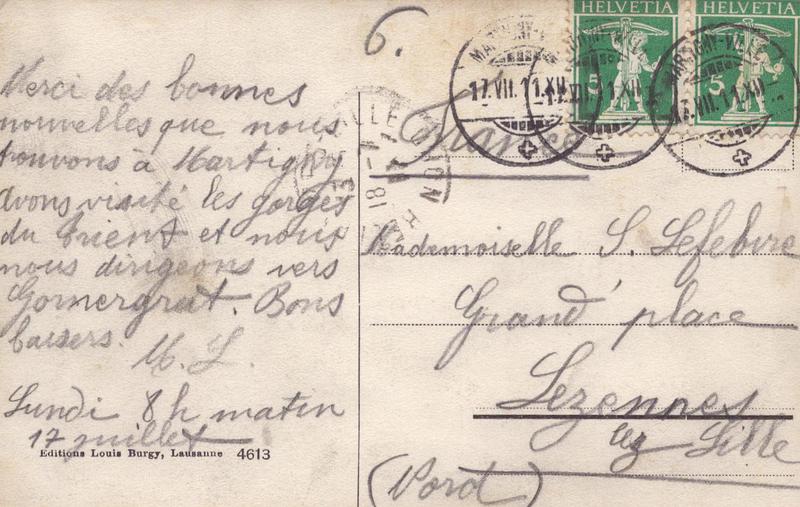 6.
HELVETIA HELVETIA
5 5
MARTIGNY-VILLE
17.VII.11.XII
France
Merci des bonnes
nouvelles que nous
trouvons à Martigny
Avons visité les gorges
du Trient et nous
nous dirigeons vers
Gornergrat. Bons
baisers.
M. L.
Lundi 8 h matin
17 juillet
Editions Louis Burgy, Lausanne 4613
Mademoiselle S. Lefebvre
Grand' place
Lezennes
lez Lille
(Nord)